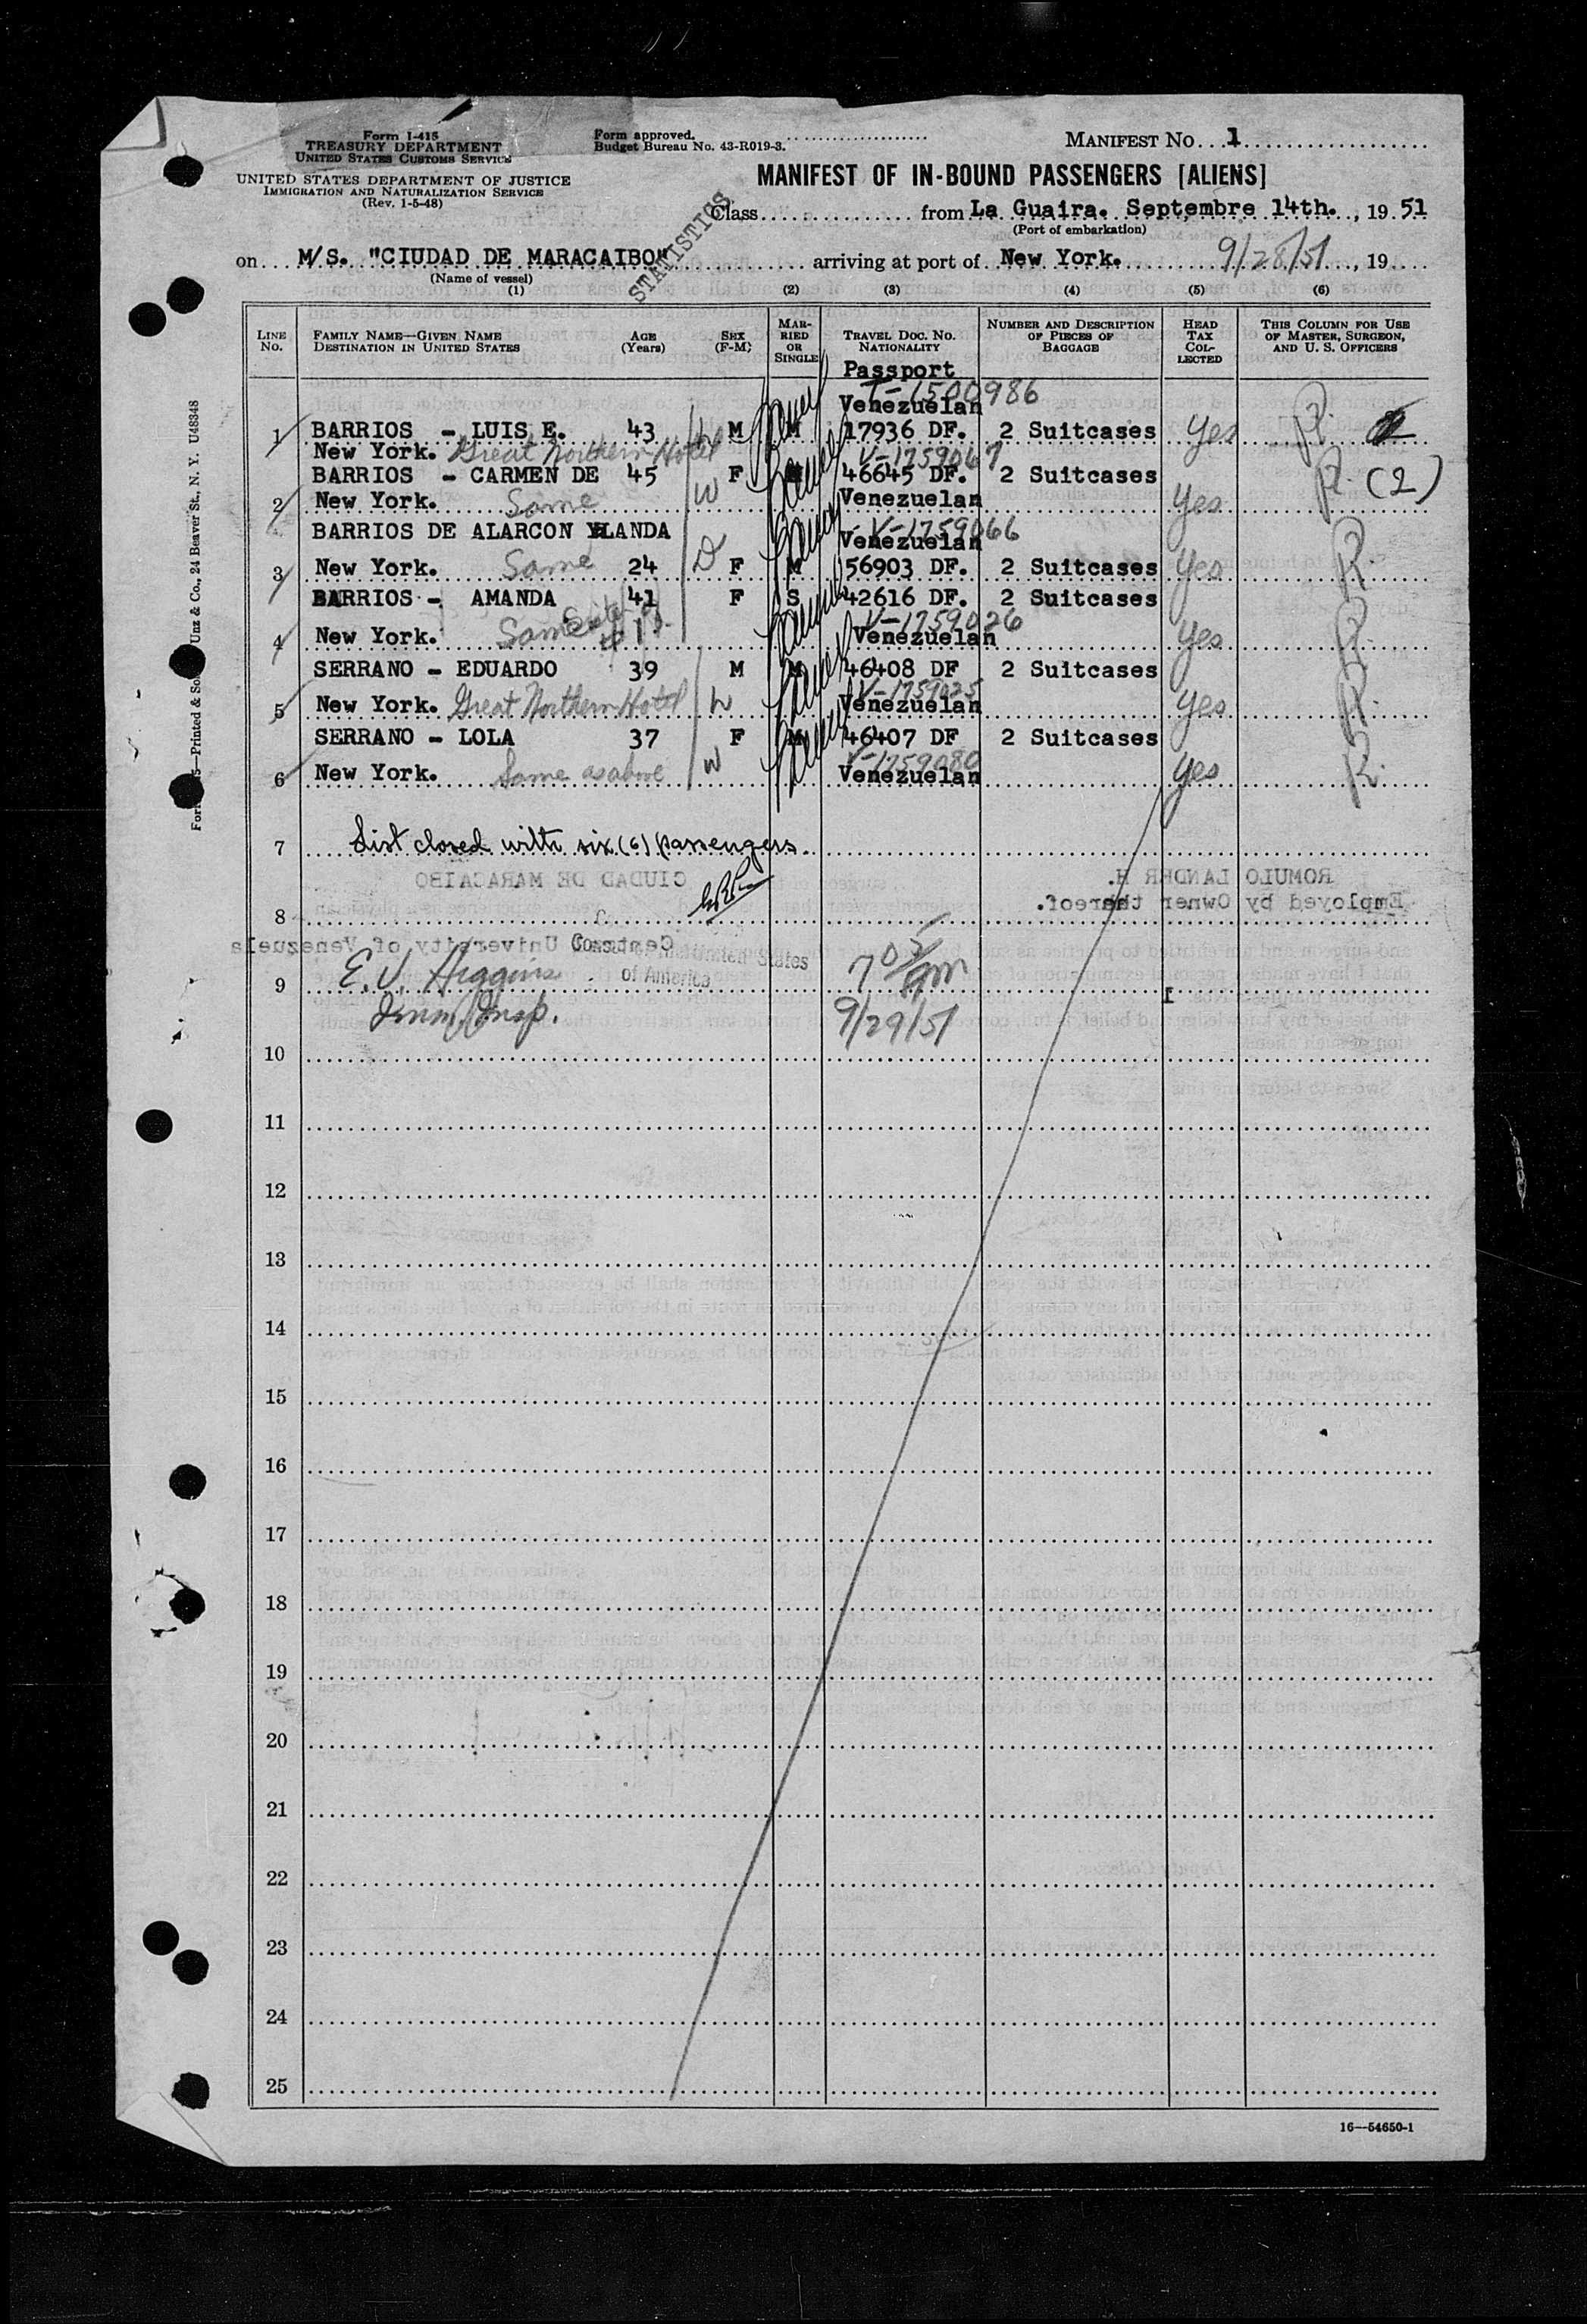 Form I-415
TREASURY DEPARTMENT
UNITED STATES CUSTOMS SERVICE
UNITED STATES DEPARTMENT OF JUSTICE
IMMIGRATION AND NATURALIZATION SERVICE
(Rev. 1-5-48)
Form approved.
Budget Bureau No. 43-R019-3.
MANIFEST NO. 1
MANIFEST OF IN-BOUND PASSENGERS [ALIENS]
STATISTICS
Class from La Guaira. Septembre 14th., 19 51
(Port of embarkation)
on M/S. "CIUDAD DE MARACAIBO" arriving at port of New York. 9/28/51, 19
(Name of vessel)
(1) (2) (3) (4) (5) (6)
LINE NO. FAMILY NAME—GIVEN NAME DESTINATION IN UNITED STATES AGE (Years) SEX (F-M) MARRIED OR SINGLE TRAVEL DOC. NO. NATIONALITY NUMBER AND DESCRIPTION OF PIECES OF BAGGAGE HEAD TAX COLLECTED THIS COLUMN FOR USE OF MASTER, SURGEON, AND U. S. OFFICERS
Passport
T-1500986
Venezuelan
1 BARRIOS - LUIS E. 43 M M 17936 DF. 2 Suitcases Yes
New York. Great Northern Hotel V-1759067
BARRIOS - CARMEN DE 45 F 46645 DF. 2 Suitcases (2)
2 New York. Same W Venezuelan Yes
BARRIOS DE ALARCON YLANDA V-1759066
Venezuelan
3 New York. Same 24 D F M 56903 DF. 2 Suitcases Yes R
BARRIOS - AMANDA 41 F S 42616 DF. 2 Suitcases
V-1759026
4 New York. Same Venezuelan Yes R
SERRANO - EDUARDO 39 M M 46408 DF 2 Suitcases
V-1759025
5 New York. Great Northern Hotel W Venezuelan Yes R
SERRANO - LOLA 37 F M 46407 DF 2 Suitcases
V-1759080
6 New York. Same as above W Venezuelan Yes R.
7 List closed with six (6) passengers.
CIUDAD DE MARACAIBO
ROMULO LANDER H.
8 Employed by Owner thereof.
Central University of Venezuela
Consul of the United States
of America
9 E. V. Higgins 7 05 pm
Imm. Insp. 9/29/51
10
11
12
13
14
15
16
17
18
19
20
21
22
23
24
25
16—54650-1
Unz & Co., 24 Beaver St., N. Y. U48348